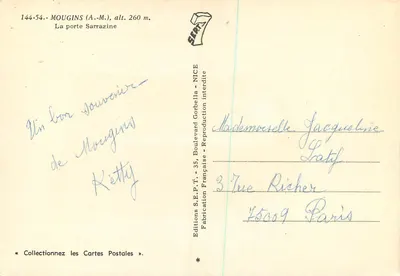 144-54.- MOUGINS (A.-M.), alt. 260 m.
La porte Sarrazine
SEPT
Un bon souvenir
de Mougins
Ketty
Editions S.E.P.T. - 35, Boulevard Gorbella - NICE
Fabrication Française - Reproduction interdite
Mademoiselle Jacqueline
3 Rue Richer
75009 Paris
« Collectionnez les Cartes Postales ».